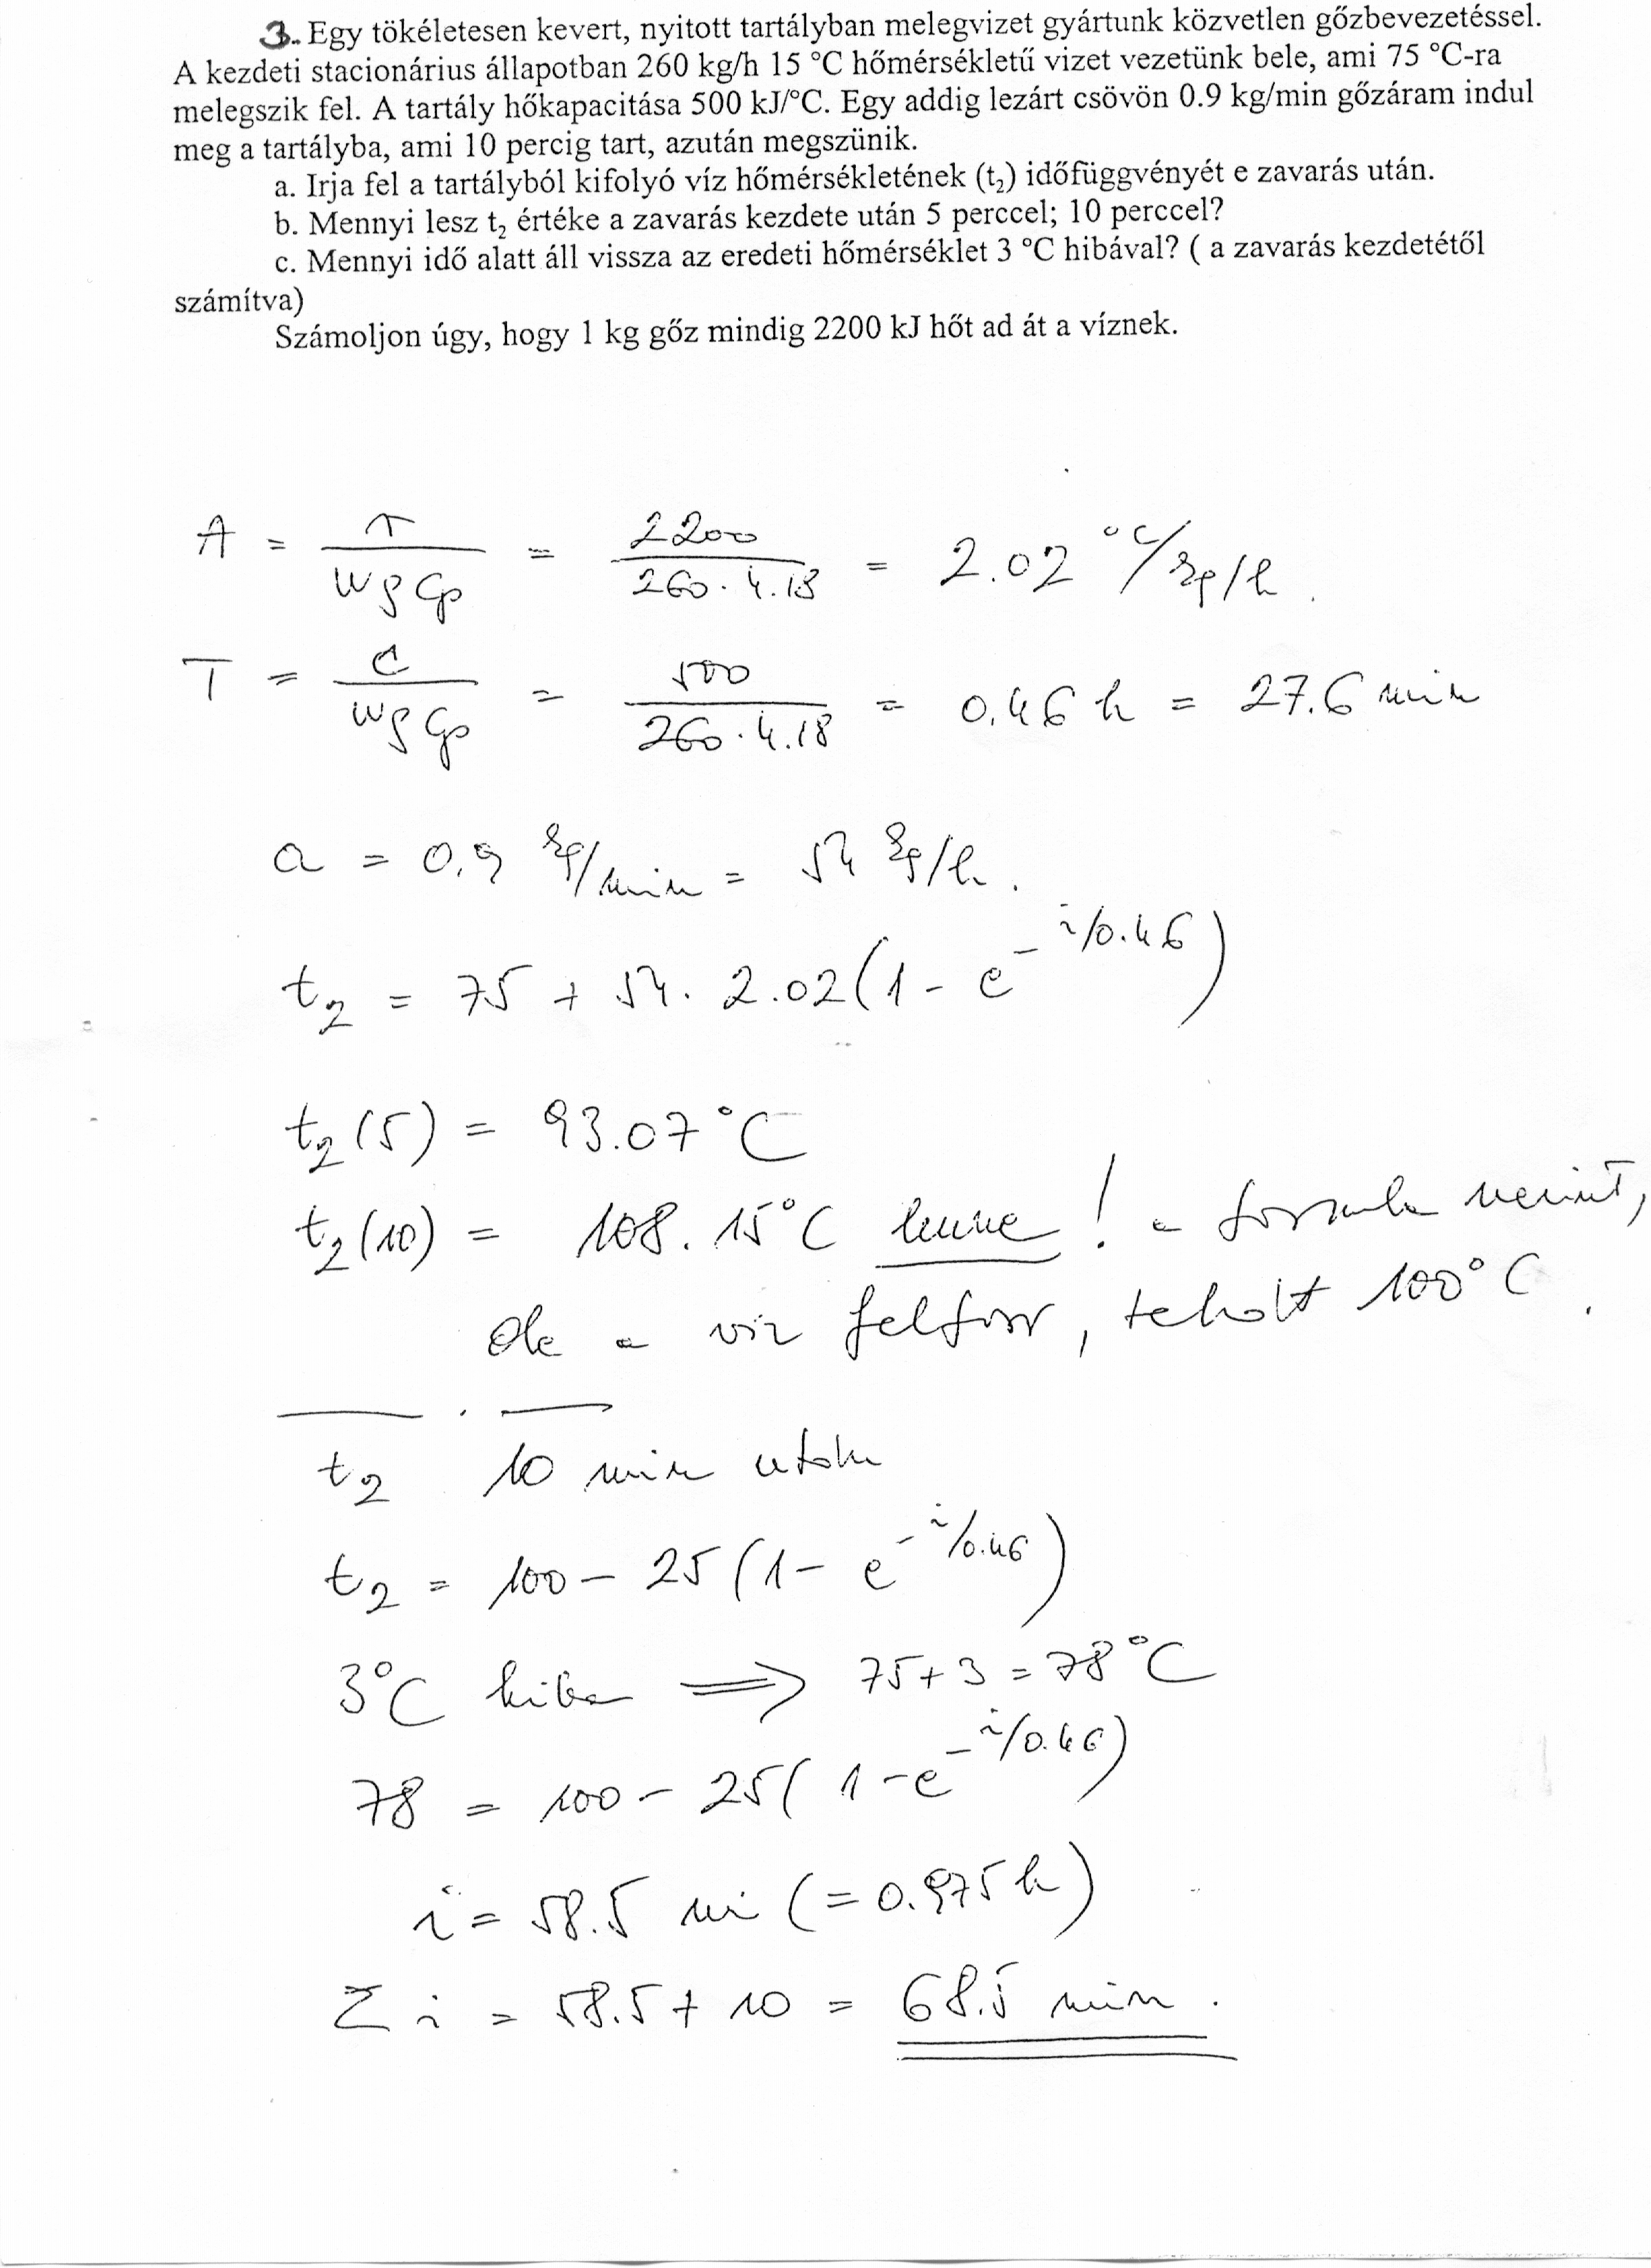 3. Egy tökéletesen kevert, nyitott tartályban melegvizet gyártunk közvetlen gőzbevezetéssel.
A kezdeti stacionárius állapotban 260 kg/h 15 °C hőmérsékletű vizet vezetünk bele, ami 75 °C-ra
melegszik fel. A tartály hőkapacitása 500 kJ/°C. Egy addig lezárt csövön 0.9 kg/min gőzáram indul
meg a tartályba, ami 10 percig tart, azután megszünik.
a. Irja fel a tartályból kifolyó víz hőmérsékletének (t₂) időfüggvényét e zavarás után.
b. Mennyi lesz t₂ értéke a zavarás kezdete után 5 perccel; 10 perccel?
c. Mennyi idő alatt áll vissza az eredeti hőmérséklet 3 °C hibával? ( a zavarás kezdetétől
számítva)
Számoljon úgy, hogy 1 kg gőz mindig 2200 kJ hőt ad át a víznek.
A = r / wρcp = 2200 / 260 · 4.18 = 2.02 °C/kg/h.
T = C / wρcp = 500 / 260 · 4.18 = 0.46 h = 27.6 min
a = 0.9 kg/min = 54 kg/h.
t₂ = 75 + 54 · 2.02 (1 - e^(-i/0.46))
t₂(5) = 93.07 °C
t₂(10) = 108.15 °C lenne! a formula szerint,
de a víz felforr, tehát 100 °C.
t₂ 10 min után
t₂ = 100 - 25 (1 - e^(-i/0.46))
3 °C hiba ⟹ 75 + 3 = 78 °C
78 = 100 - 25 (1 - e^(-i/0.46))
i = 58.5 mi (= 0.975 h)
Σ i = 58.5 + 10 = 68.5 min.